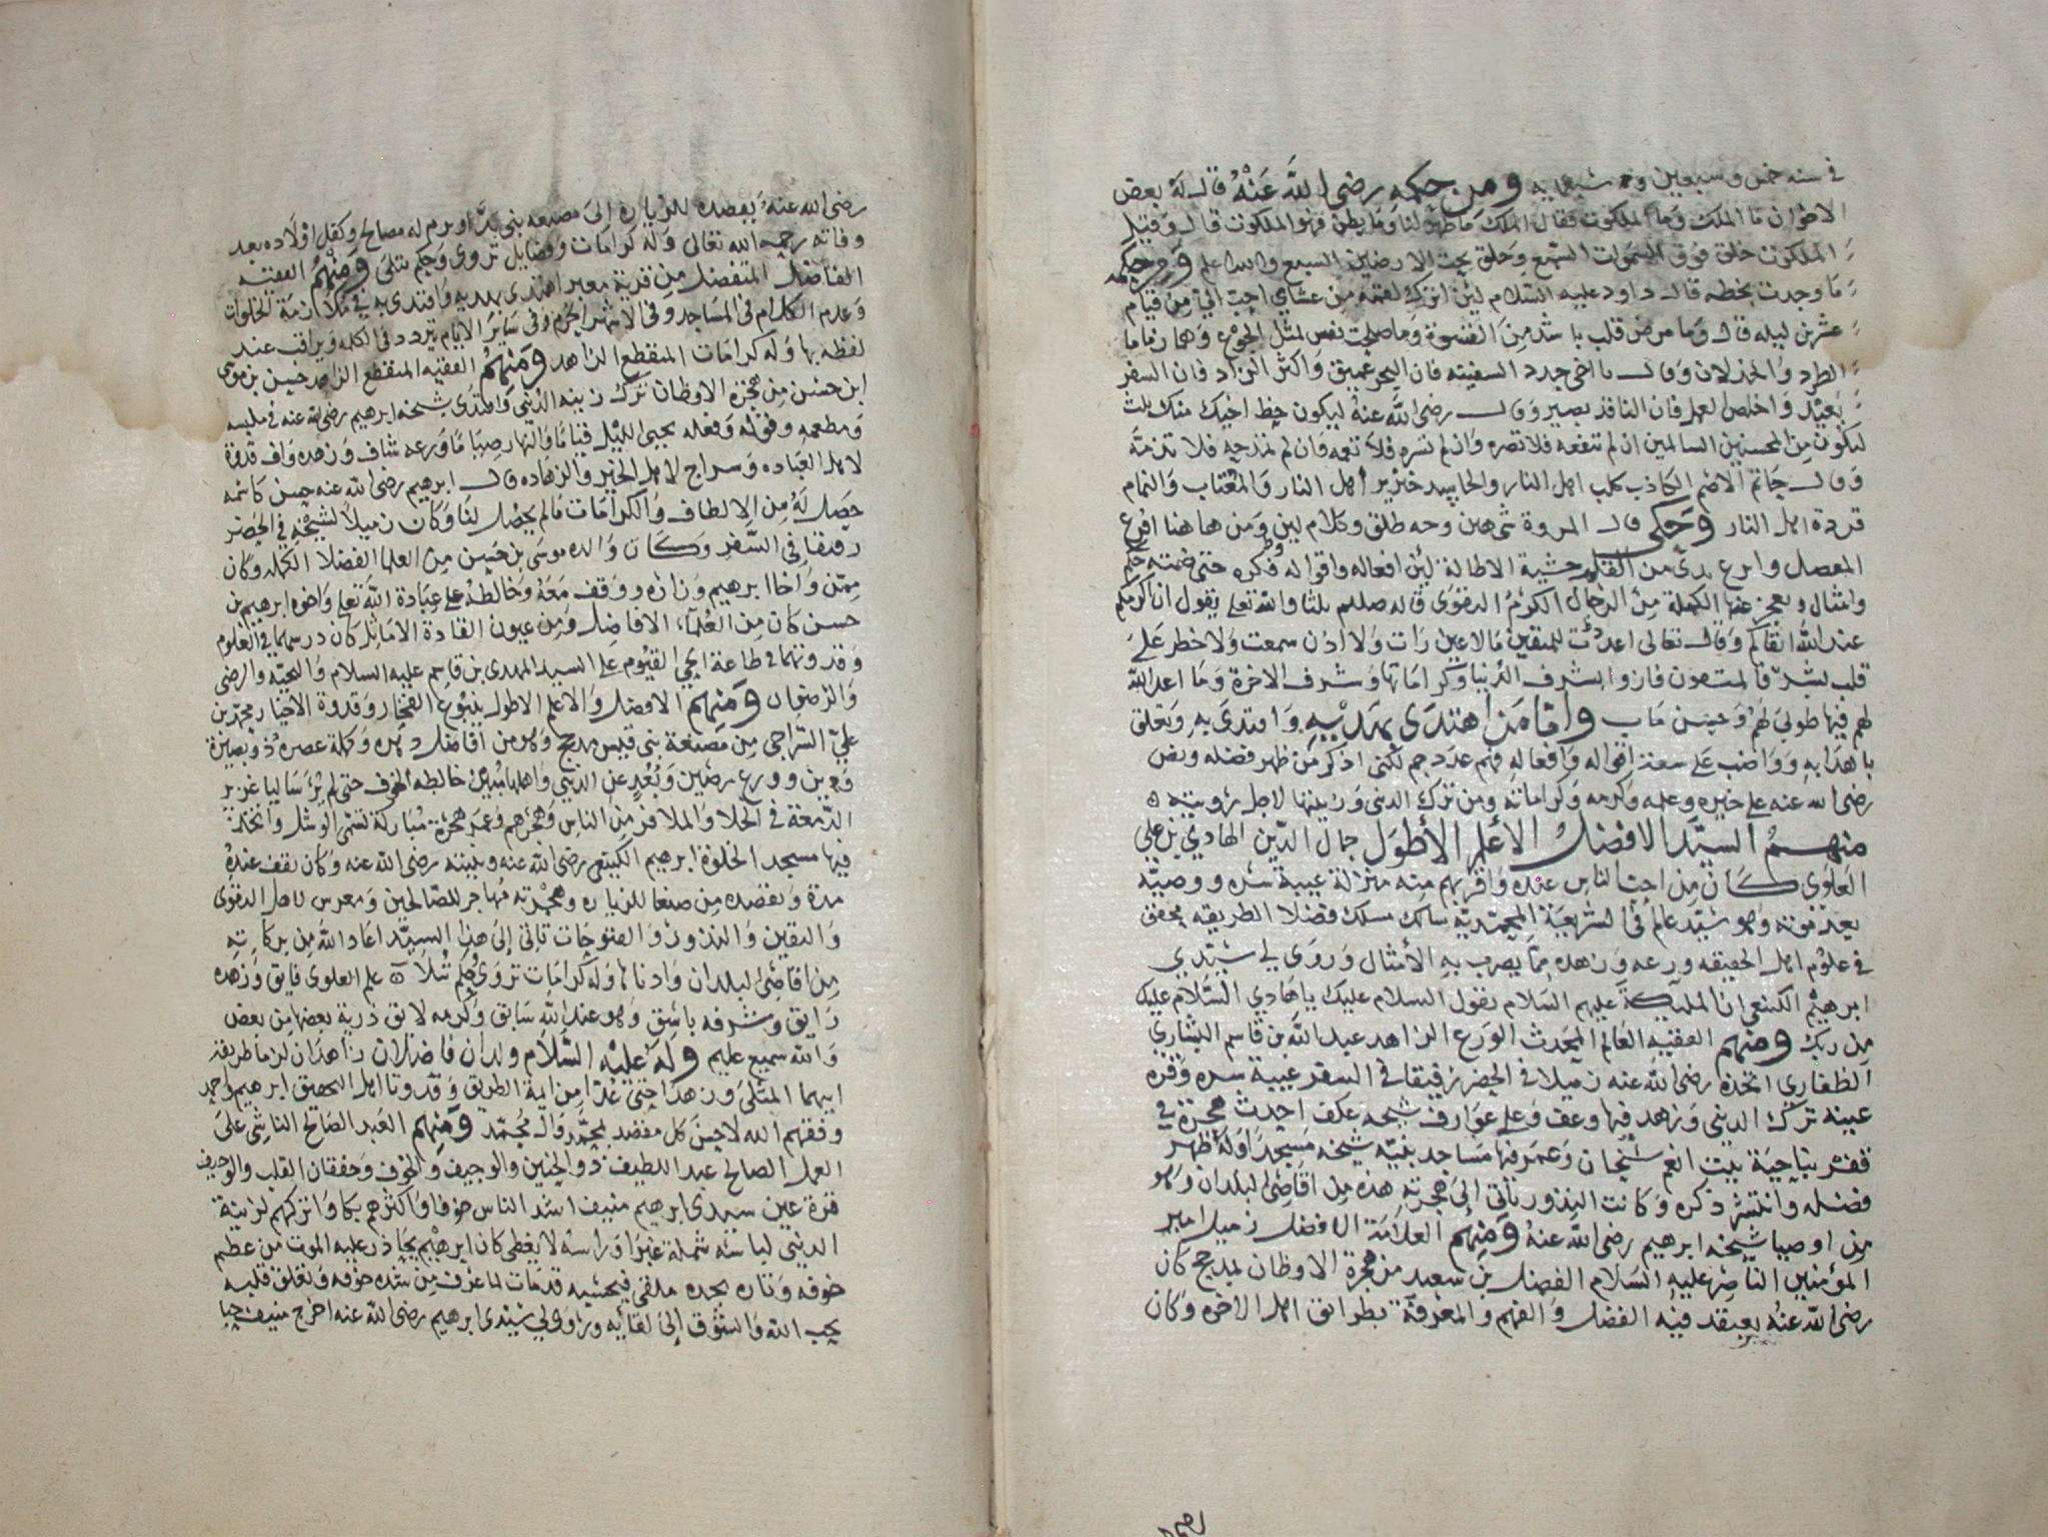 في سنه خمس وسبعين و سبعمايه ومن حكمه رضي الله عنه قال له بعض
الاخوان ما الملك وما الملكوت فقال الملك ما ظهر لنا وما بطن فهو الملكوت قال وقيل
الملكوت خلق فوق السموات السبع وخلق تحت الارضين السبع والله اعلم ومن حكمه
ما وجدت بخطه قال داود عليه السلام لئن اترك لقمه من عشاي احب الي من قيام
عشرين ليله قال وما مرض قلب باشد من القسوة وما صلحت نفس لمثل الجوع وهما زماما
الطرد والخذلان وقال يا اخي جدد السفينه فان البحر عميق واكثر الزاد فان السفر
بعيد واخلص العمل فان الناقد بصير وقال رضي الله عنه ليكون حظ اخيك منك ثلث
لتكون من المحسنين السالمين ان لم تنفعه فلا تضره وان لم تسره فلا تغمه وان لم تمدحه فلا تذمه
وقال حاتم الاصم الكاذب كلب اهل النار والحاسد خنزير اهل النار والمغتاب والنمام
قردة اهل النار وحكى قال المروة شي هين وجه طلق وكلام لين ومن هاهنا افرع
المعصل وابرع خشية الاطالة لئن افعاله واقواله وفكره حتى ضمنته حكم
وامثال ويعجز عنها الكملة من الرجال الكرم التقوى قاله صلعم ثلثا والله تعلى يقول ان اكرمكم
عند الله اتقاكم وقال تعالى اعددت للمتقين مالا عين رات ولا اذن سمعت ولا خطر على
قلب بشر فالمتقون فازوا بشرف الدنيا وكراماتها وشرف الاخرة وما اعد الله
لهم فيها طوبى لهم وحسن ماب واما من اهتدى بهديه واقتدى به وتعلق
باهدابه وواضب على سعة اقواله وافعاله فهم عدد جم لكني اذكر من ظهر فضله ونص
رضي الله عنه على خيره وعلمه وكرمه وكراماته ومن ترك الدنى وزينتها لاجل رؤيته
منهم السيد الافضل الاعلم الأطول جمال الدين الهادي بن علي
العلوي كان من احب الناس عنده واقربهم منه منزلة عيبة سره ووصيه
بعد موته وهو سيد عالم في الشريعة المحمدية سالك مسلك فضلا الطريقه محقق
في علوم اهل الحقيقه ورعه وزهده مما يضرب به الأمثال وروى لي سيدي
ابرهيم الكينعي ان المليكة عليهم السلام تقول السلام عليك يا هادي السلام عليك
من ربك ومنهم الفقيه العالم المحدث الورع الزاهد عبد الله بن قاسم البشاري
الظفاري اتخذه رضي الله عنه زميلا في الحضر رفيقا في السفر عيبة سره وقرة
عينه ترك الدنى وزهد فيها وعف وعلى عوارف شيخه عكف احدث هجرة في
قفر بناحية بيت انعم وعمر فيها مساجد بنيه شيخه مسجدا وله ظهر
فضله وانتشر ذكره وكانت النذور تأتي إلى هجرته هذه من اقاضي البلدان وهو
من اوصيا شيخه ابرهيم رضي الله عنه ومنهم العلامة الافضل زميل امير
المؤمنين الناصر عليه السلام الفضل بن سعيد من هجرة الاوطان لمدحج كان
رضي الله عنه يعتقد فيه الفضل والفهم والمعرفة بطرائق اهل الاخره وكان
رضي الله عنه يقصده للزياره إلى مصنعه بني او يرم له مصالح وكفل اولاده بعد
وفاته رحمه الله تعالى وله كرامات وفضايل تروى وحكم تتلى ومنهم الفقيه
الفاضل المتفضل من قرية معبر اهتدى بهديه واقتدى به في ملازمة الخلوات
وعدم الكلام في المساجد وفي الاشهر الحرم وفي سائر الايام يتردد في الكلمه ويراقب عند
لفظه بها وله كرامات المنقطع الزاهد ومنهم الفقيه المنقطع الزاهد حسين بن موسى
ابن حسن من هجرة الاوطان ترك زينه الدنى واقتدى بشيخه ابرهيم رضي الله عنه في ملبسه
ومطعمه وقوله وفعله يحيى الليل قياما والنهار صياما وورعه شاف وزهده واف قدوة
لاهل العباده وسراج لاهل الخير والزهاده قال ابرهيم رضي الله عنه حسن كاسمه
حصل له من الالطاف والكرامات مالم يحصل لنا وكان زميلا لشيخه في الحضر
رفيقا في السفر وكان والده موسى بن حسين من العلما الفضلا الكمله وكان
ممن واخا ابرهيم وزاره ووقف معه وخالطه على عبادة الله تعلى واخوه ابرهيم بن
حسن كان من العلماء الافاضل ومن عيون القادة الاماثل كان درسهما في العلوم
وقدوتهما في طاعة الحي القيوم على السيد المهدي بن قاسم عليه السلام والتحيه والرضى
والرضوان ومنهم الافضل والاعلم الاطول ينبوع الفخار وقدوة الاخيار محمد بن
علي السراجي من مصنعة بني قيس مدحج وهو من افاضل دهره وكملة عصره ذو بصيرة
ويقين وورع رصين وبعد عن الدنى واهلها خالطه الخوف حتى لم ير ساليا غزير
الدمعة في الخلا والملا فر من الناس وهجرهم وعمر هجرة مباركة تسمى الوشل واتخذ
فيها مسجد الخلوة ابرهيم الكينعي رضي الله عنه وبيته رضي الله عنه وكان يقف عنده
مدة ويقصده من صنعا للزياره وهجرته مهاجر للصالحين ومعرس لاهل التقوى
واليقين والنذور والفتوحات تاتي إلى هذا السيد اعاد الله من بركاته
من اقاضي البلدان وادناها وله كرامات تروى وحكم تتلا علم العلوي فايق وزهده
رايق وشرفه باسق وهو عند الله سابق وكرمه لائق ذرية بعضها من بعض
والله سميع عليم وله عليه السلام ولدان فاضلان زاهدان لزما طريقة
ابيهما المثلى وزهدا حتى عدا من ايمة الطريق وقدوتا اهل التحقيق ابرهيم واحمد
وفقهم الله لاحسن كل مقصد بمحمد وال محمد ومنهم العبد الصالح الناشي على
العمل الصالح عبد اللطيف ذو الحنين والوجيف والخوف وخفقان القلب والوجيف
قرة عين سيدي ابرهيم منيف اشد الناس خوفا واكثرهم بكا واتركهم لزينة
الدنيى لباسه شملة غبرا وراسه لا يغطى كان ابرهيم يحاذر عليه الموت من عظم
خوفه وتاره يجده ملقى فيحسبه قد مات لما عرف من شده خوفه وتعلق قلبه
بحب الله والشوق إلى لقائه وراوى لي سيدي ابرهيم رضي الله عنه اخرج منيف